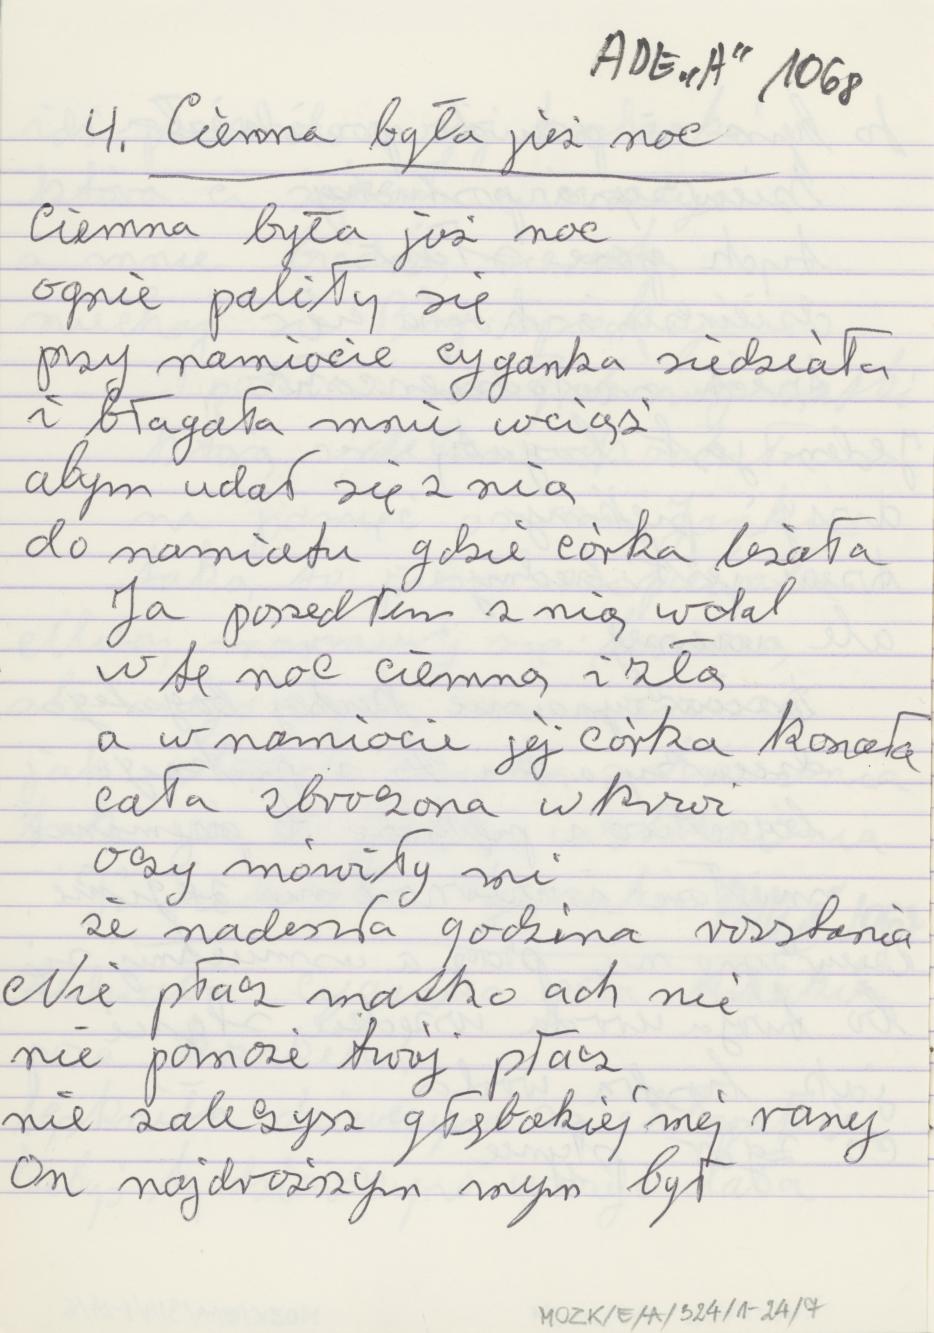 ADE„A" 1068
4. Ciemna była już noc
Ciemna była już noc
ognie paliły się
przy namiocie cyganka siedziała
i błagała mnie wciąż
abym udał się z nią
do namiotu gdzie córka leżała
Ja poszedłem z nią wdal
w tę noc ciemną i złą
a w namiocie jej córka konała
cała zbroczona w krwi
oczy mówiły mi
że nadeszła godzina rozstania
Nie płacz matko ach nie
nie pomoże twój płacz
nie zaleczysz głębokiej mej rany
On najdroższym mym był
MOZK/E/A/324/1-24/7